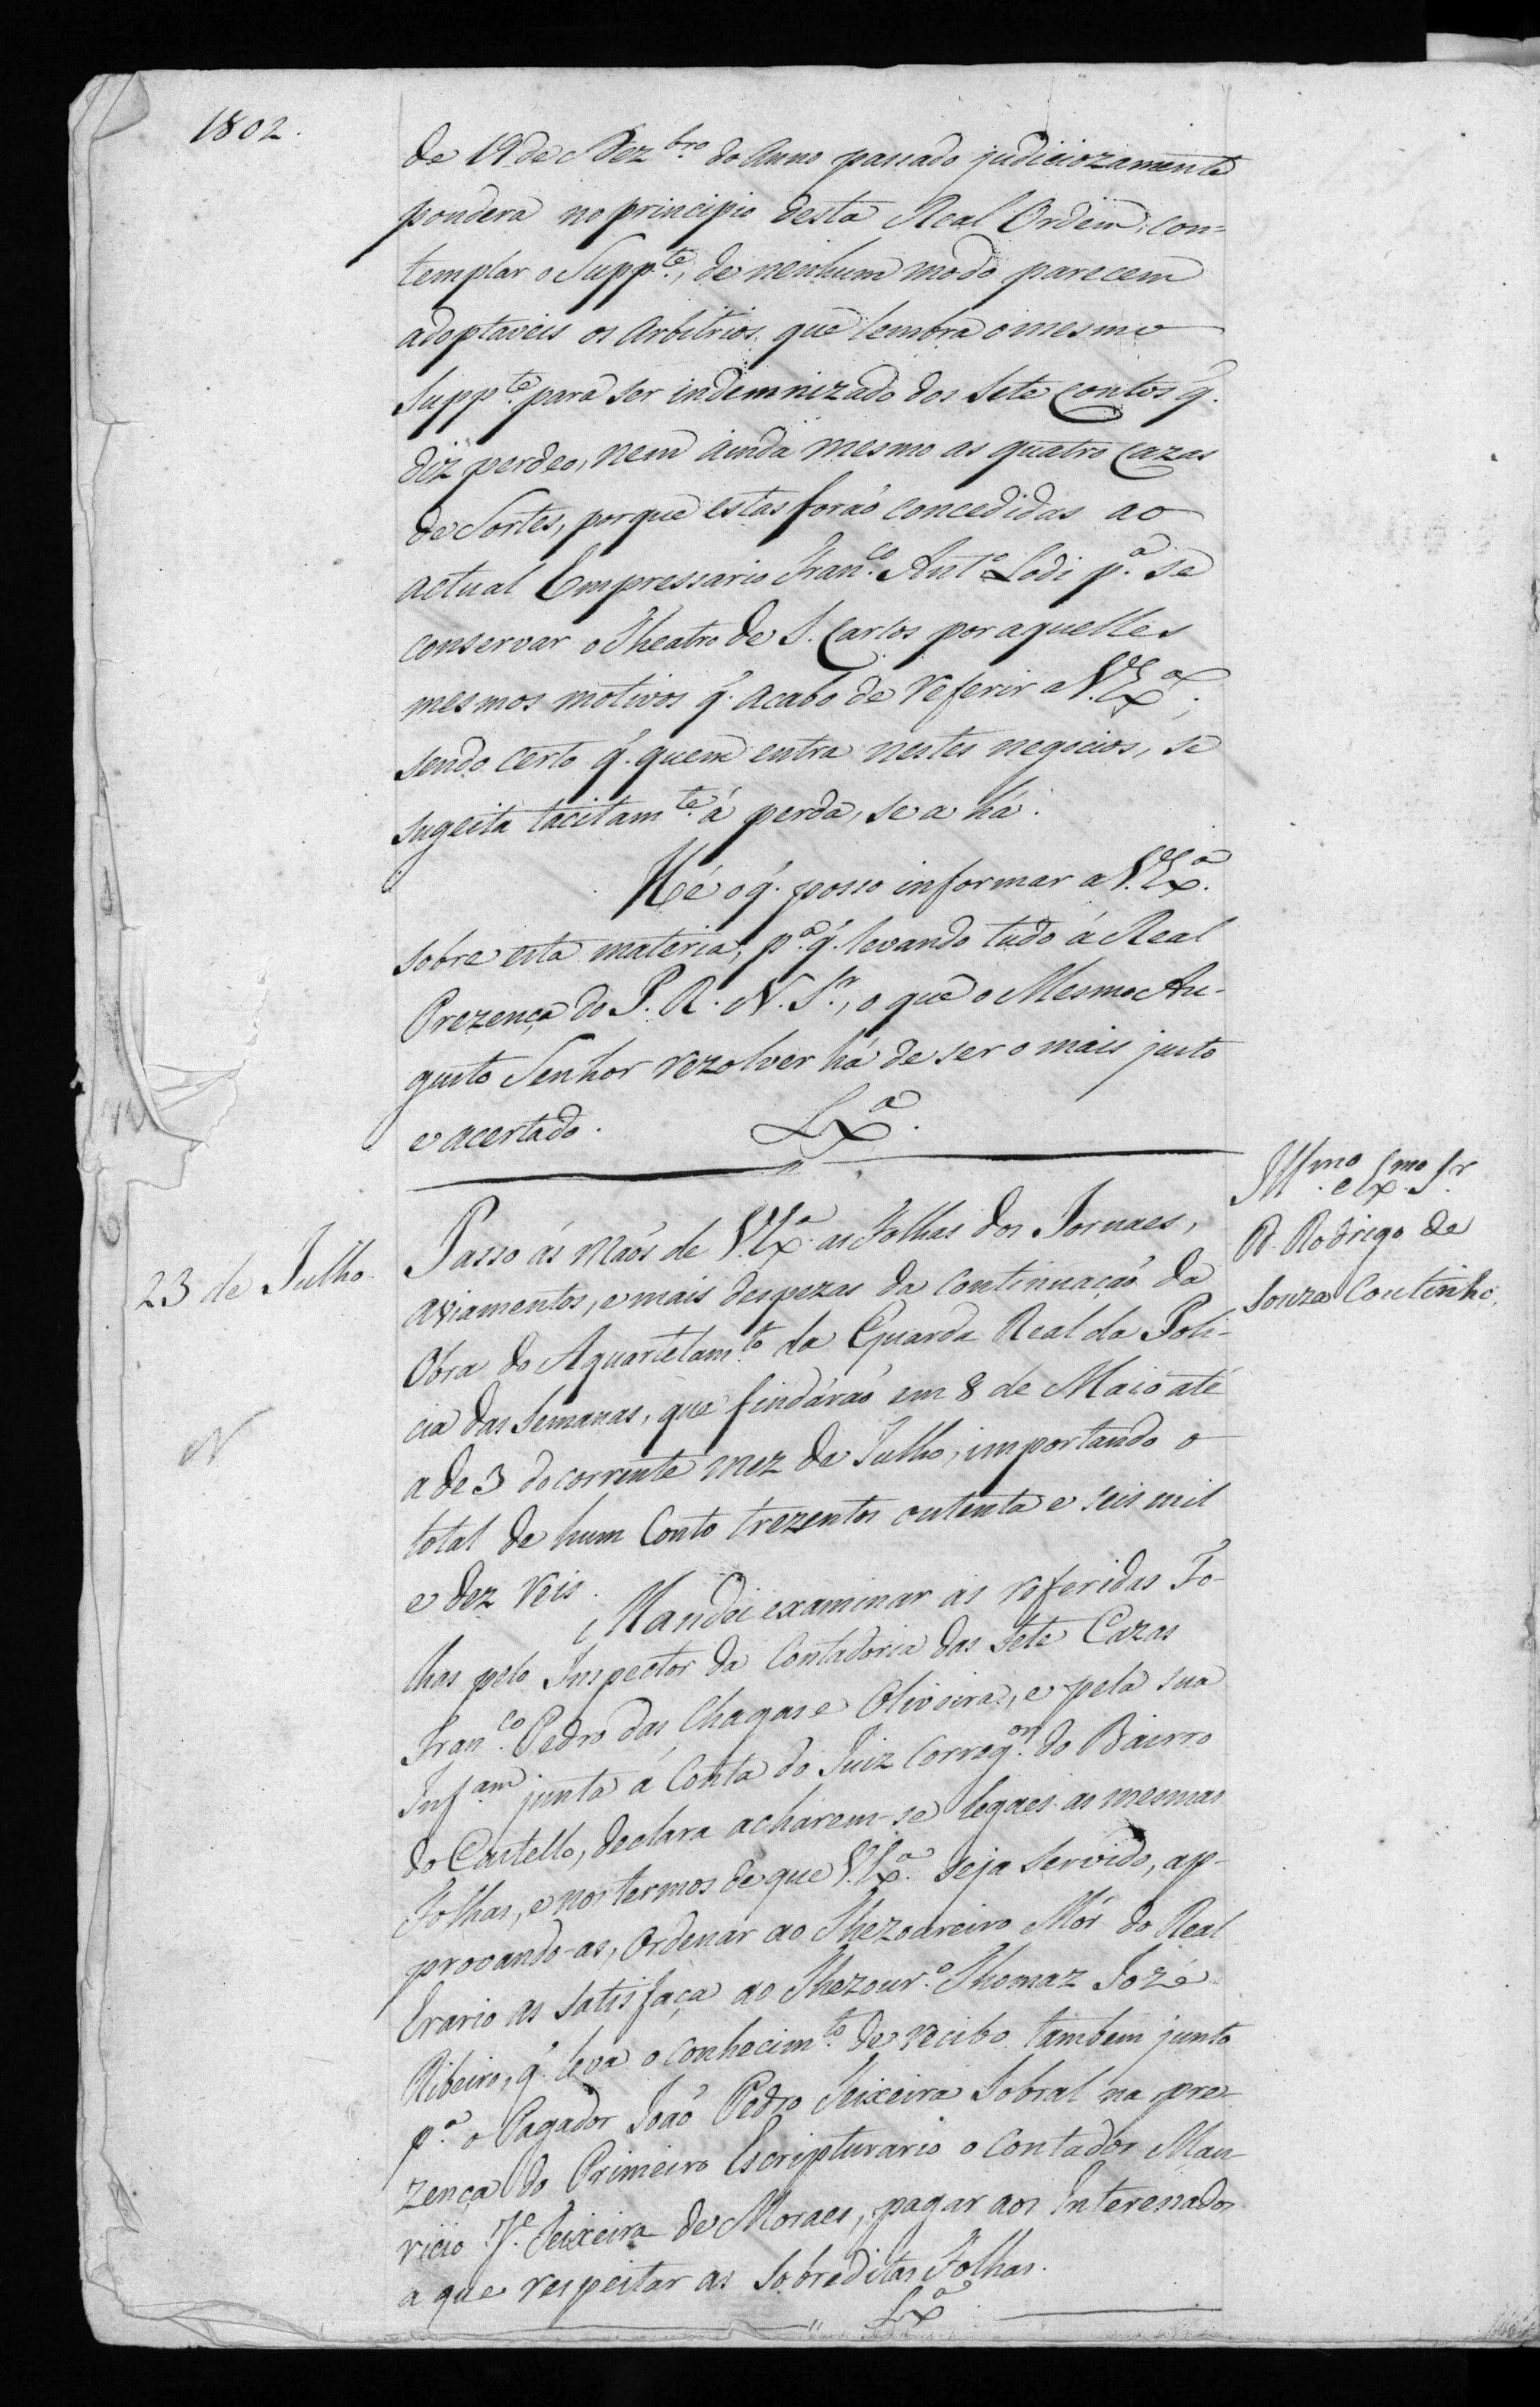 1802.
de 19 de Dez.bro do Anno passado judiciozamente
pondera no principio desta Real Ordem, con=
templar o Supp.te, de nenhum modo parecem
adoptaveis os arbitrios que lembra o mesmo
Supp.te para ser indemnizado dos Sete Contos q.
diz perdeo, nem ainda mesmo as quatro Cazas
de Sortes, porque estas foraõ concedidas ao
actual Empressario Fran.co Ant.o Lodi p.a se
conservar o Theatro de S. Carlos por aquelles
mesmos motivos q. acabo de referir a V. Ex.a;
sendo certo q. quem entra nestes negocios, se
sugeita tacitam.te á perda, se a há.
Hé o q. posso informar a V. Ex.a
sobre esta materia, p.a q. levando tudo á Real
Prezença do P. R. N. S.r, o que o Mesmo Au-
gusto Senhor rezolver há de ser o mais justo
e acertado. Lx.a
23 de Julho.
Ill.mo e Ex.mo S.r
D. Rodrigo de
Souza Coutinho.
Passo ás maõs de V. Ex.a as Folhas dos Jornaes,
aviamentos, e mais despezas da continuaçaõ da
Obra do Aquartelam.to da Guarda Real da Poli-
cia das Semanas, que findáraõ em 8 de Maio até
a de 3 do corrente mez de Julho, importando o
total de hum Conto trezentos outenta e seis mil
e dez reis.
N
Mandei examinar as referidas Fo-
lhas pelo Inspector da Contadoria das Sete Cazas
Fran.co Pedro das Chagas e Oliveira, e pela sua
Inf.am junta á Conta do Juiz Correg.or do Bairro
do Castello, declara acharem-se legaes as mesmas
Folhas, e nos termos de que V. Ex.a seja servido, ap-
provando-as, Ordenar ao Thezoureiro Mór do Real
Erario as satisfaça ao Thezour.o Thomaz Jozé
Ribeiro, q. leva o conhecim.to de recibo tambem junto
p.a o Pagador Joaõ Pedro Teixeira Sobral na pre-
zença do Primeiro Escripturario o Contador Mau-
ricio J.e Teixeira de Moraes, pagar aos Interessados
a que respeitar as Sobreditas Folhas.
Lx.a